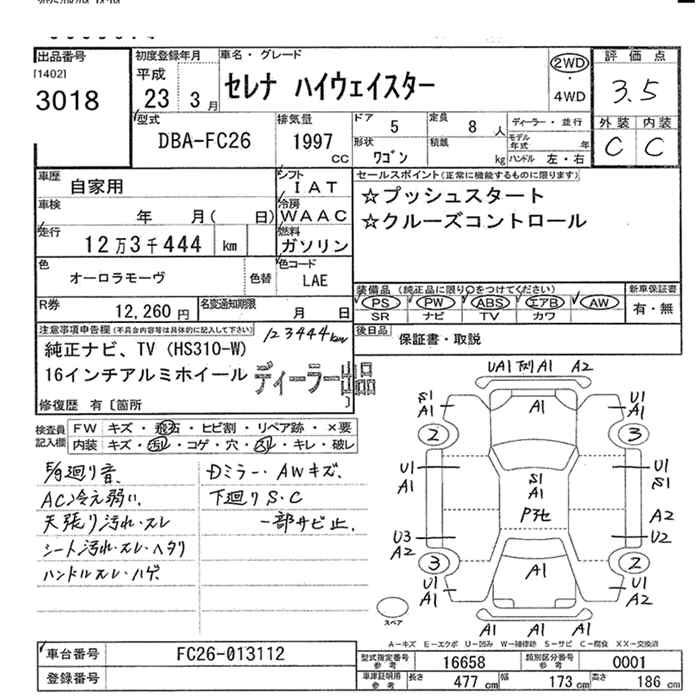 出品番号
[1402]
3018
初度登録年月
平成
23 3月
車名・グレード
セレナ ハイウェイスター
2WD
・
4WD
評価点
3.5
外装 内装
C C
型式
DBA-FC26
排気量
1997
CC
ドア
5
定員
8 人
形状
ワゴン
積載
kg
ディーラー・並行
モデル年式 年
ハンドル 左・右
車歴
自家用
シフト
I A T
車検
年 月( 日)
冷房
W A A C
走行
12万3千444 km
燃料
ガソリン
色
オーロラモーヴ
色替
色コード
LAE
R券
12,260円
名変通知期限
月 日
セールスポイント(正常に機能するものに限ります)
☆プッシュスタート
☆クルーズコントロール
装備品 (純正品に限り○をつけてください)
PS PW ABS エアB AW
SR ナビ TV カワ
新車保証書
有・無
後日品
保証書・取説
注意事項申告欄(不具合内容等は具体的に記入して下さい)
123444km
純正ナビ、TV (HS310-W)
16インチアルミホイール
ディーラー出品
修復歴 有〔箇所 〕
検査員記入欄
FW キズ・飛石・ヒビ割・リペア跡・×要
内装 キズ・汚れ・コゲ・穴・スレ・キレ・破レ
廻り音
AC冷え弱い
天張り汚れ・スレ
シート汚れ・スレ・ヘタリ
ハンドルスレ・ハゲ
Dミラー・AWキズ
下廻りS・C
一部サビ止
UA1 下刈A1 A2
S1
A1
A1
U1
A1
2
3
U1
A1
S1
A1
Pタ化
U1
S1
U3
A2
A2
U2
3
2
A1
U1
A1
U1
A1
A1 A1 A1
スペア
A-キズ E-エクボ U-凹み W-補修跡 S-サビ C-腐食 XX-交換済
車台番号
FC26-013112
登録番号
型式指定番号
参考
16658
類別区分番号
参考
0001
車庫証明用
参考
長さ 477 cm
幅 173 cm
高さ 186 cm